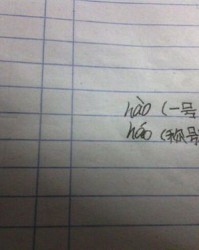 hào (一号
háo (称号